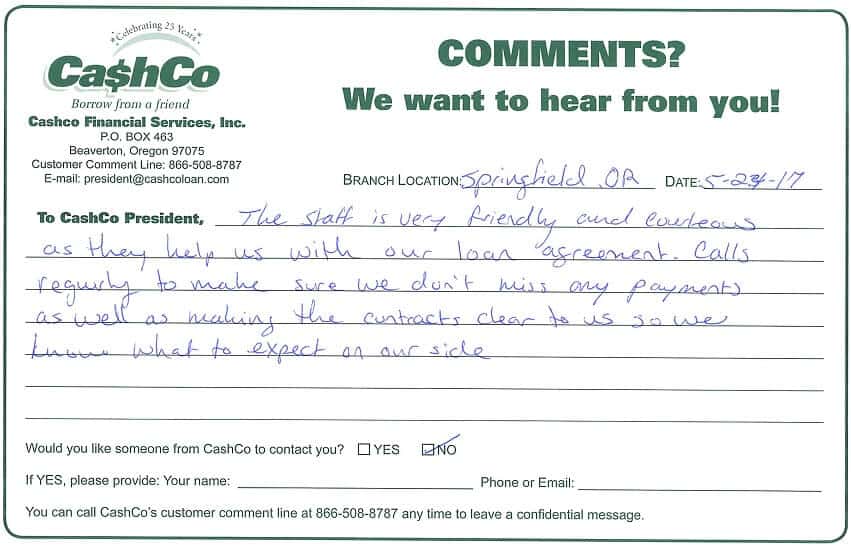 Celebrating 25 Years
Ca$hCo
Borrow from a friend
Cashco Financial Services, Inc.
P.O. BOX 463
Beaverton, Oregon 97075
Customer Comment Line: 866-508-8787
E-mail: president@cashcoloan.com
COMMENTS?
We want to hear from you!
BRANCH LOCATION: Springfield, OR DATE: 5-23-17
To CashCo President, The staff is very friendly and courteous
as they help us with our loan agreement. Calls
regurly to make sure we don't miss any payments
as well as making the contracts clear to us so we
know what to expect on our side
Would you like someone from CashCo to contact you? ☐ YES ☑ NO
If YES, please provide: Your name: Phone or Email:
You can call CashCo's customer comment line at 866-508-8787 any time to leave a confidential message.